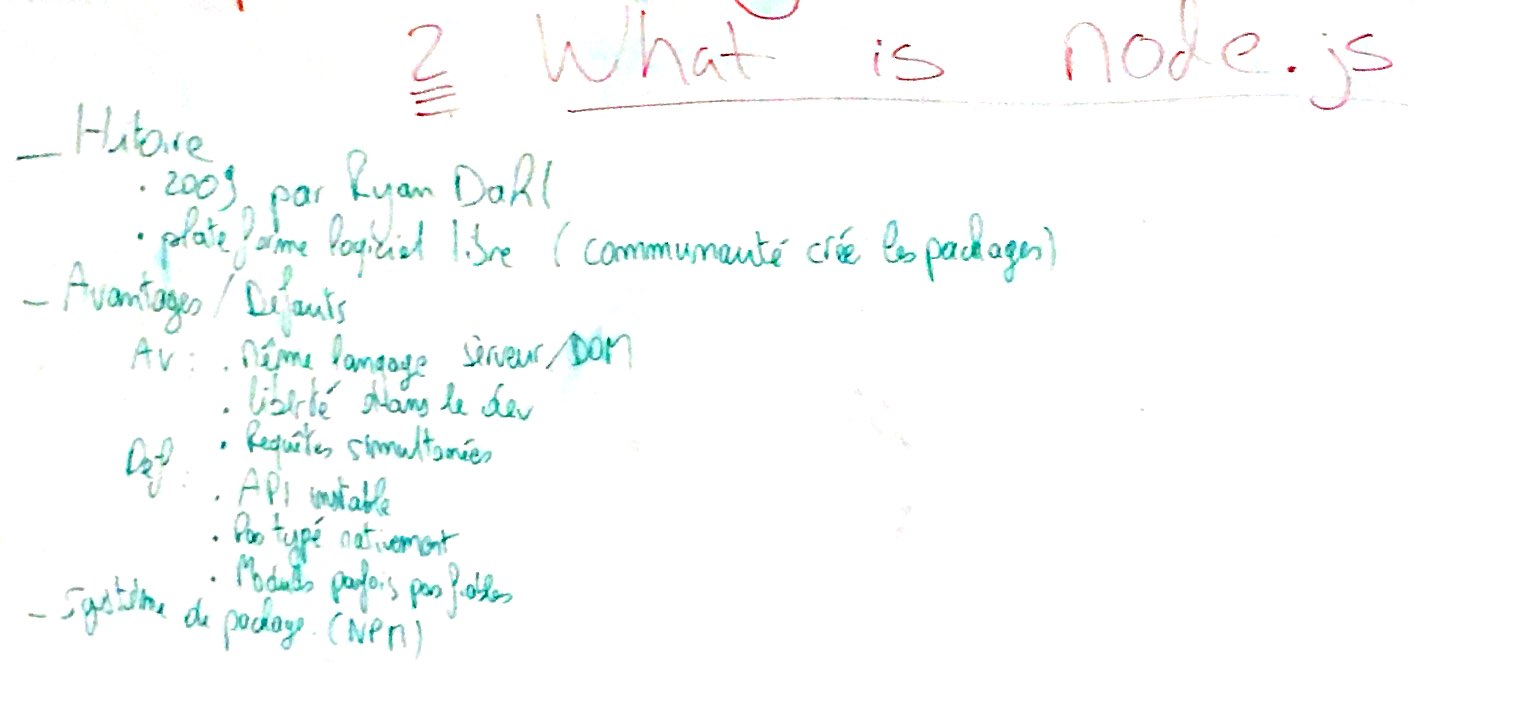 2 What is node.js
- Histoire
• 2009, par Ryan Dahl
• plateforme logiciel libre (communauté crée les packages)
- Avantages / Défauts
Av : • Même langage serveur/DOM
• liberté dans le dev
• Requêtes simultanées
Def : • API instable
• Pas typé nativement
• Modules parfois pas fiables
- Système de package (NPM)